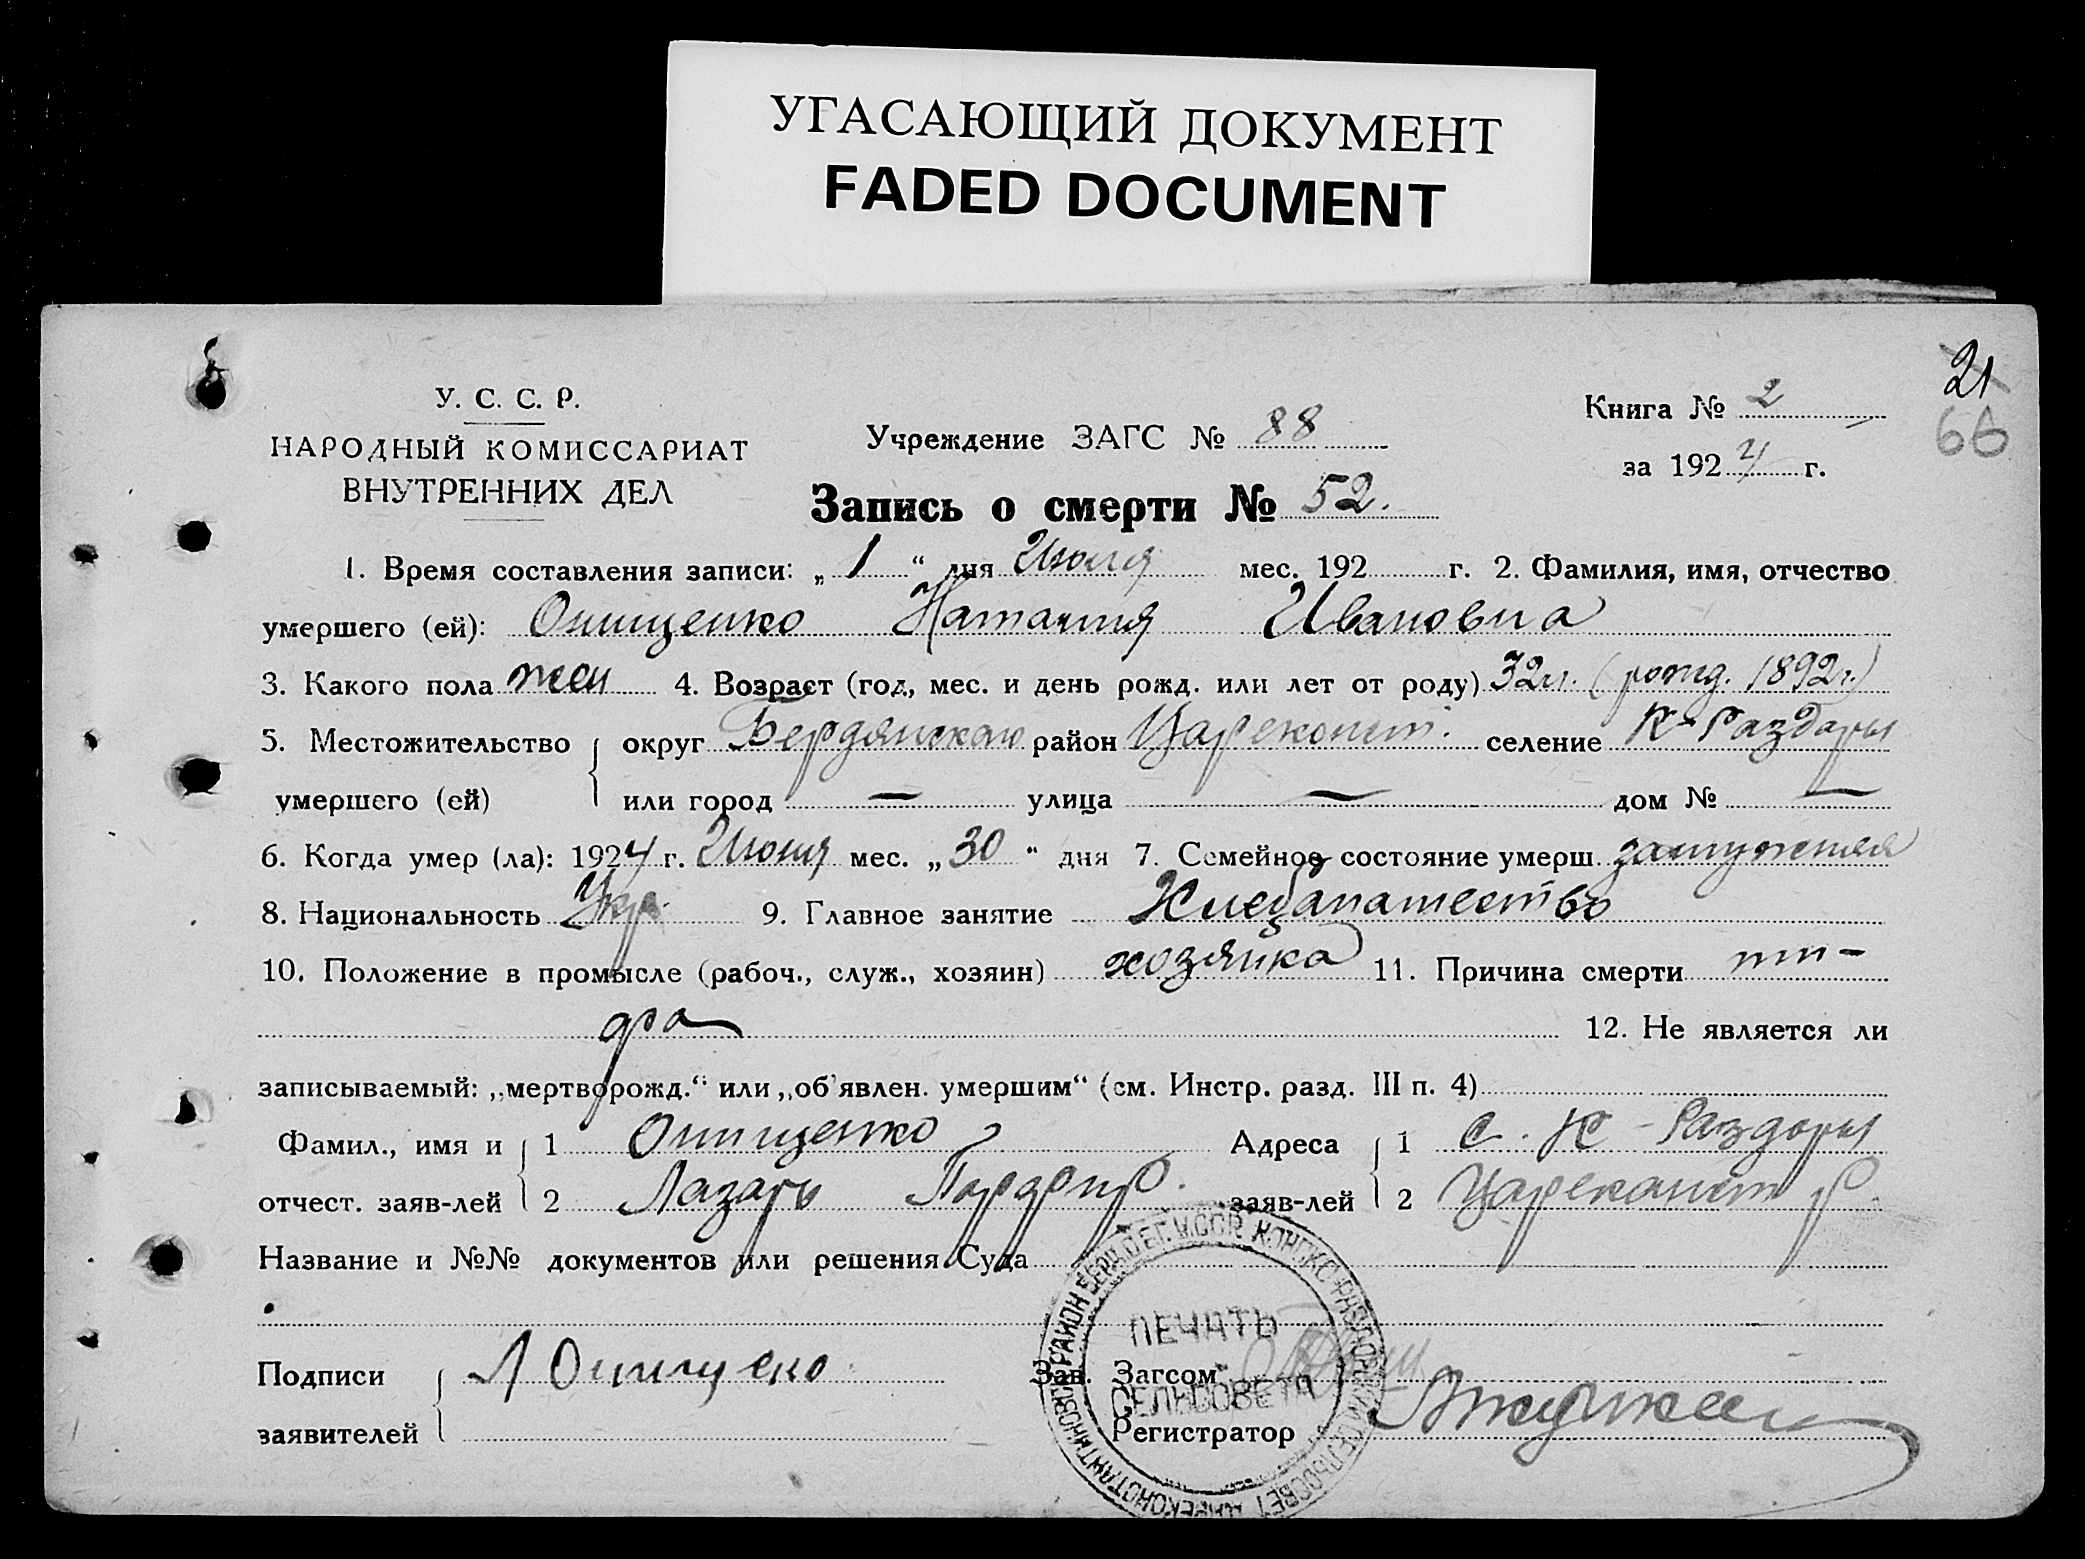 УГАСАЮЩИЙ ДОКУМЕНТ
FADED DOCUMENT
21
66
У. С. С. Р.
НАРОДНЫЙ КОМИССАРИАТ
ВНУТРЕННИХ ДЕЛ
Учреждение ЗАГС № 88
Книга № 2
за 1924 г.
Запись о смерти № 52.
1. Время составления записи: „ 1 “ дня Июля мес. 192 г. 2. Фамилия, имя, отчество
умершего (ей): Онищенко Наталия Ивановна
3. Какого пола жен 4. Возраст (год, мес. и день рожд. или лет от роду) 32 л. (рожд. 1892 г.)
5. Местожительство округ Бердянского район Цареконст. селение К-Раздоры
умершего (ей) или город — улица — дом № —
6. Когда умер (ла): 1924 г. Июня мес. „ 30 “ дня 7. Семейное состояние умерш. замужняя
8. Национальность Укр. 9. Главное занятие Хлебапашество
10. Положение в промысле (рабоч., служ., хозяин) хозяйка 11. Причина смерти ти-
фа 12. Не является ли
записываемый: „мертворожд.“ или „об'явлен. умершим“ (см. Инстр. разд. III п. 4)
Фамил., имя и 1 Онищенко Адреса 1 С. К-Раздоры
отчест. заяв-лей 2 Лазарь Порфир. заяв-лей 2 Цареконст р.
Название и №№ документов или решения Суда
Подписи Л Онищенко Зав. Загсом
заявителей Регистратор
ПЕЧАТЬ
СЕЛЬСОВЕТА